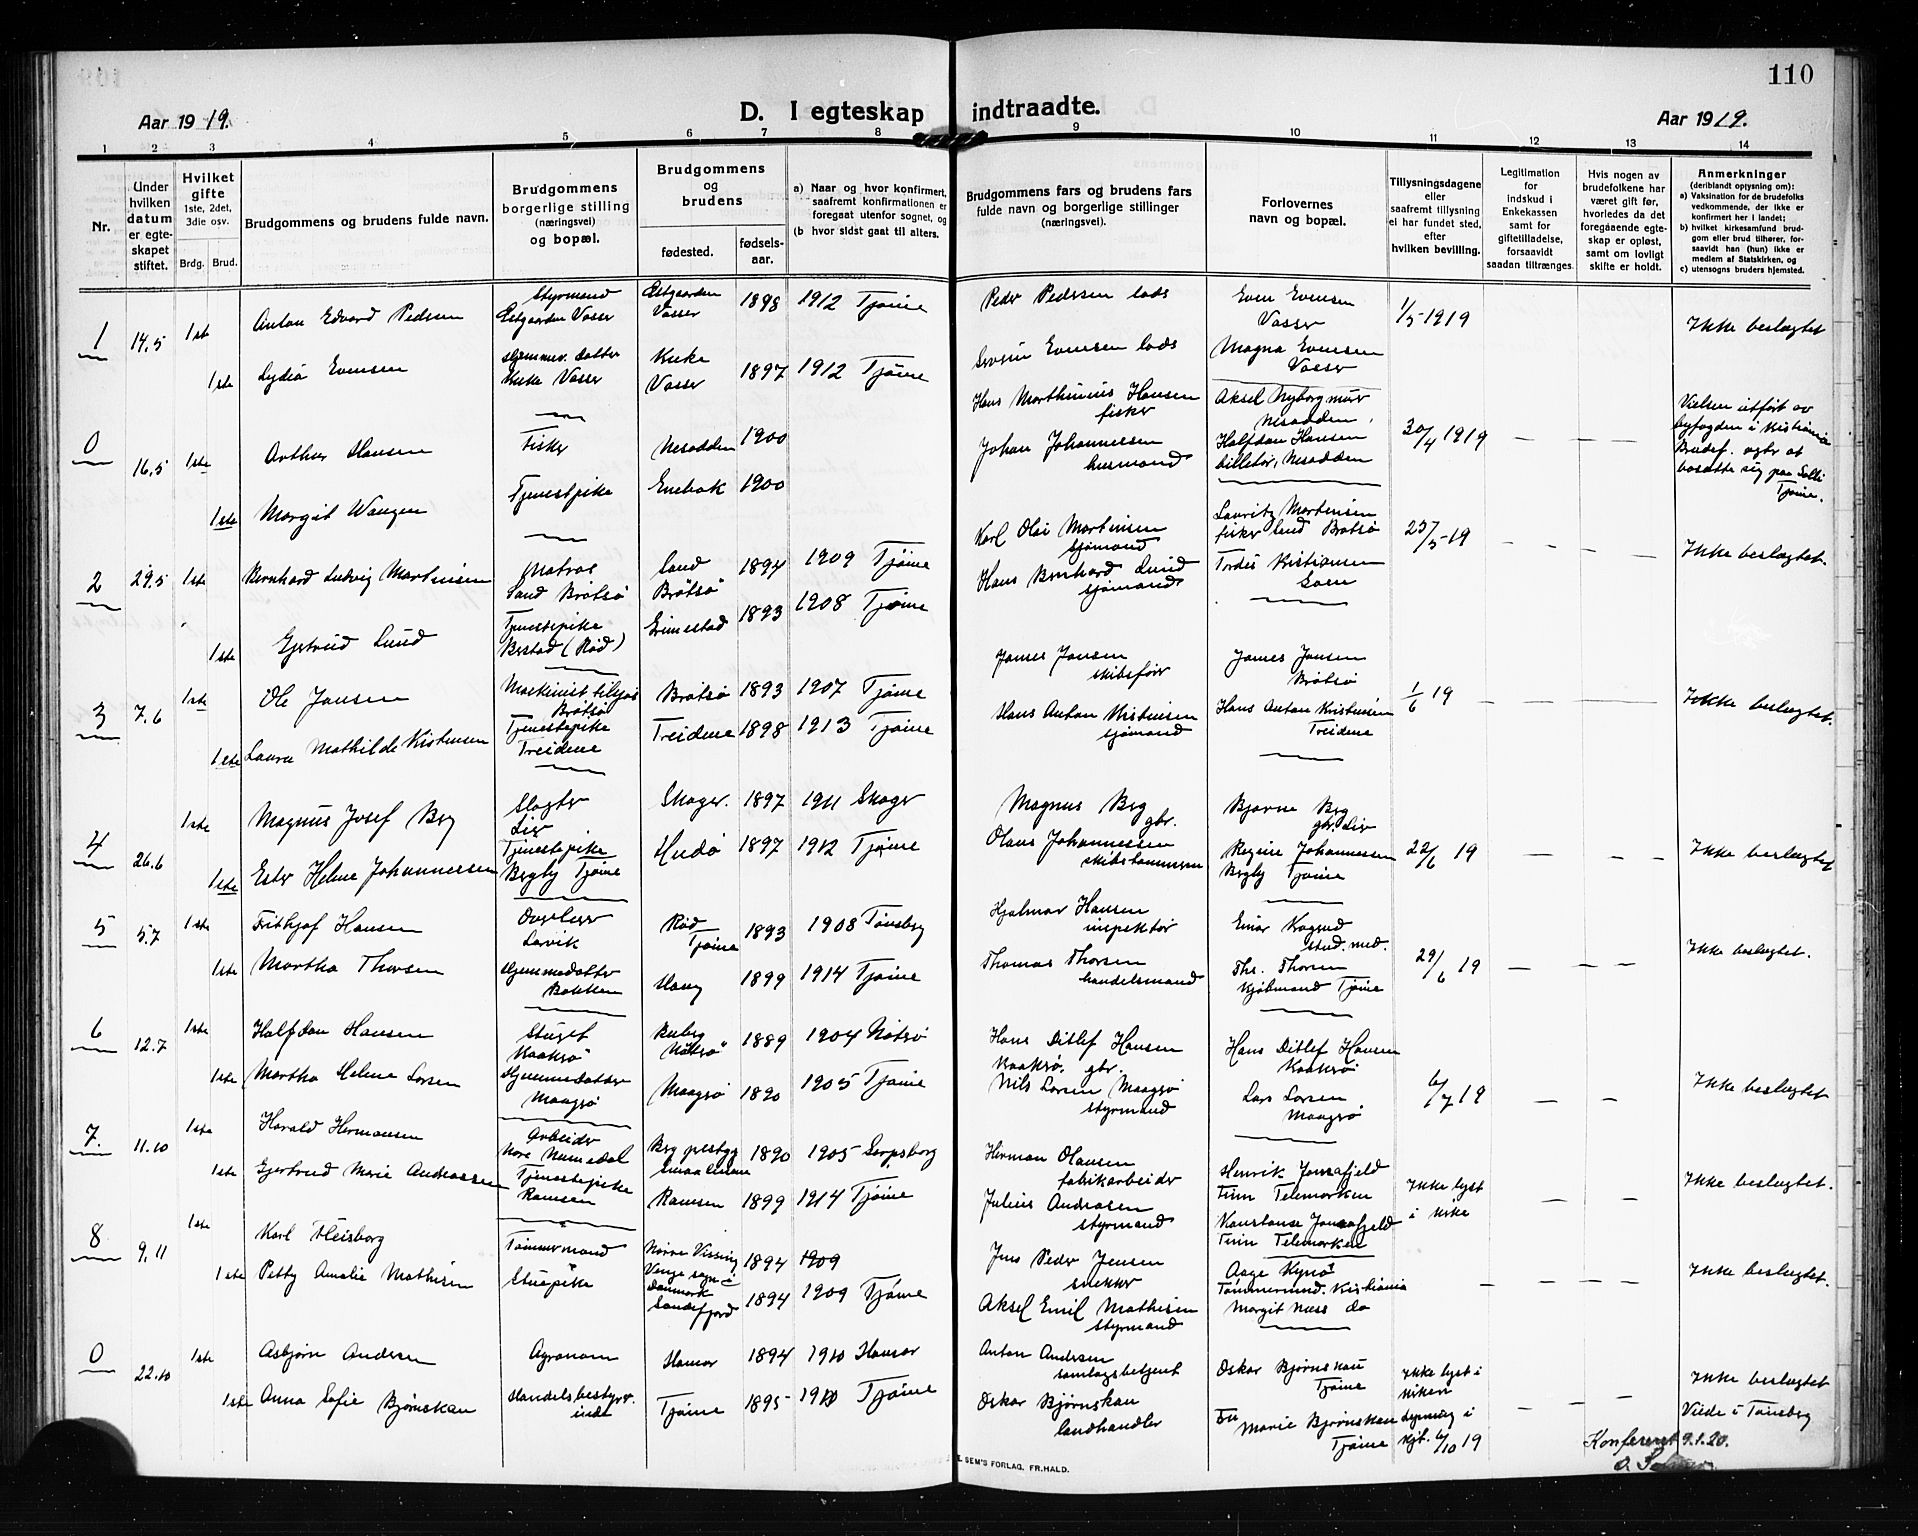 110
Aar 1919.
D. I egteskap indtraadte.
Aar 1919.
1 2 3 4 5 6 7 8 9 10 11 12 13 14
Nr.
Under hvilken datum er egteskapet stiftet.
Hvilket gifte 1ste, 2det, 3die osv.
Brdg. Brud.
Brudgommens og brudens fulde navn.
Brudgommens borgerlige stilling (næringsvei) og bopæl.
Brudgommens og brudens
fødested. fødselsaar.
a) Naar og hvor konfirmert, saafremt konfirmationen er foregaat utenfor sognet, og
(b hvor sidst gaat til alters.
Brudgommens fars og brudens fars fulde navn og borgerlige stillinger (næringsvei).
Forlovernes navn og bopæl.
Tillysningsdagene eller saafremt tillysning ei har fundet sted, efter hvilken bevilling.
Legitimation for indskud i Enkekassen samt for giftetilladelse, forsaavidt saadan tiltrænges.
Hvis nogen av brudefolkene har været gift før, hvorledes da det foregaaende egteskap er opløst, samt om lovligt skifte er holdt.
Anmerkninger
(deriblandt oplysning om):
a) Vaksination for de brudefolks vedkommende, der ikke er konfirmert her i landet;
b) hvilket kirkesamfund brudgom eller brud tilhører, forsaavidt han (hun) ikke er medlem af Statskirken, og
c) utensogns bruders hjemsted.
1 14.5 1ste Anton Edvard Pedersen Styrmand Østgaarden Vasser Østgaarden Vasser 1898 1912 Tjøme Peder Pedersen lods Even Evensen Vasser 1/5 1919 Ikke beslægtet
1ste Lydia Evensen Hjemmev. datter Kuke Vasser Kuke Vasser 1897 1912 Tjøme Severin Evensen lods Magna Evensen Vasser
0 16.5 1ste Arthur Hansen Fisker Nesodden 1900 Hans Marthinius Hansen fisker Aksel Nyborg murer Nesodden, 30/4 1919 — — — Vielsen utført av byfogden i Kristiania Brudef. agter at bosætte sig paa Solli Tjøme.
1ste Margit Wangen Tjenestpike Enebak 1900 Johan Johannessen husmand Halfdan Hansen billetør, Nesodden
2 29.5 1ste Bernhard Ludvig Martinsen Matros Sand Brøtsø Sand Brøtsø 1894 1909 Tjøme Karl Olai Martinsen sjømand Lauritz Martinsen fisker Sand Brøtsø 25/5 19 — — — — Ikke beslægtet.
1ste Gjertrud Lund Tjenestepike Berstad (Rød) Grimestad 1893 1908 Tjøme Hans Bernhard Lund sjømand Tordis Kristiansen Goen
3 7.6 1ste Ole Jansen Maskinist tilsjøs Brøtsø Brøtsø 1893 1907 Tjøme James Jansen skibsfører James Jansen Brøtsø 1/6 19 — — — — Ikke beslægtet.
1ste Laura Mathilde Kristensen Tjenestepike Treidene Treidene 1898 1913 Tjøme Hans Anton Kristensen sjømand Hans Anton Kristensen Treidene
4 26.6 1ste Magnus Josef Berg Slagter Lier Skoger. 1897 1911 Skoger Magnus Berg gbr. Bjarne Berg gbr. Lier 22/6 19 — — — Ikke beslægtet
1ste Ester Helene Johannessen Tjenestepike Bergby Tjøme Hudø 1897 1912 Tjøme Olaus Johannessen skibstømmerm Regine Johannessen Bergby Tjøme
5 5.7 1ste Frithjof Hansen Overlærer Larvik Rød Tjøme 1893 1908 Tønsberg Hjalmar Hansen inspektør Einar stud. med. 29/6 19 — — — Ikke beslægtet.
1ste Martha Thorsen Hjemmedatter Bakken Haug 1899 1914 Tjøme Thomas Thorsen handelsmand Ths. Thorsen Kjøbmand Tjøme
6 12.7 1ste Halfdan Hansen Stuert Kaaksø Nøtterø 1889 1904 Nøtterø Hans Ditlef Hansen Kaaksø, gbr. Hans Ditlef Hansen Kaaksø 6/7 19 — — Ikke beslægtet
1ste Martha Helene Larsen Hjemmedatter Maagsø Maagsø 1890 1905 Tjøme Nils Larsen Maagsø styrmand Lars Larsen Maagsø
7. 11.10 1ste Harald Hermansen Arbeider Nore Numedal Smaalenene 1890 1905 Sarpsborg Herman Olausen fabrikarbeider Henrik Jonsafjeld Tinn Telemarken Ikke lyst i kirke — — Ikke beslægtet.
1ste Gjertrud Marie Andreassen Tjenestepike Ramsen Ramsen 1899 1914 Tjøme Julius Andreasen styrmand Konstanse Jonsafjeld Tinn Telemarken
8 9.11 1ste Karl Fleisborg Tømmermand Nørre Vissing Venge sogn i Danmark 1894 1909 Jens Peder Jensen snekker Aage Kynø Tømmermand. Kristiania — — — Ikke beslægtet.
1ste Petty Amalie Mathisen Stuepike Sandefjord 1894 1909 Tjøme Aksel Emil Mathisen styrmand Margit Næss do
0 22.10 1ste Asbjørn Andersen Agronom Hamar 1894 1910 Hamar Anton Andersen samlagsbetjent Oskar Bjørnskau Tjøme Ikke lyst i kirken — — — Ikke beslægtet
1ste Anna Sofie Bjørnskau Handelsbestyrerinde Tjøme 1895 1910 Tjøme Oskar Bjørnskau landhandler Fru Marie Bjørnskau Tjøme 6/10 19 Viede i Tønsberg
Konfereret 9.1.20.
SEM'S FORLAG, FR.HALD.